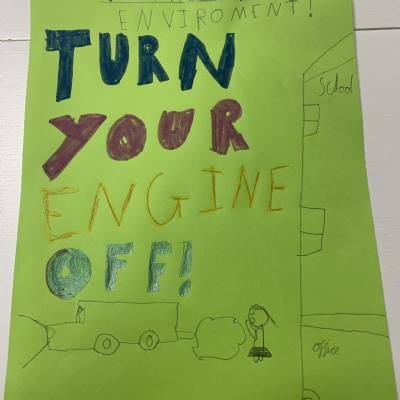 ENVIROMENT!
TURN
School
YOUR
ENGINE
OFF!
office